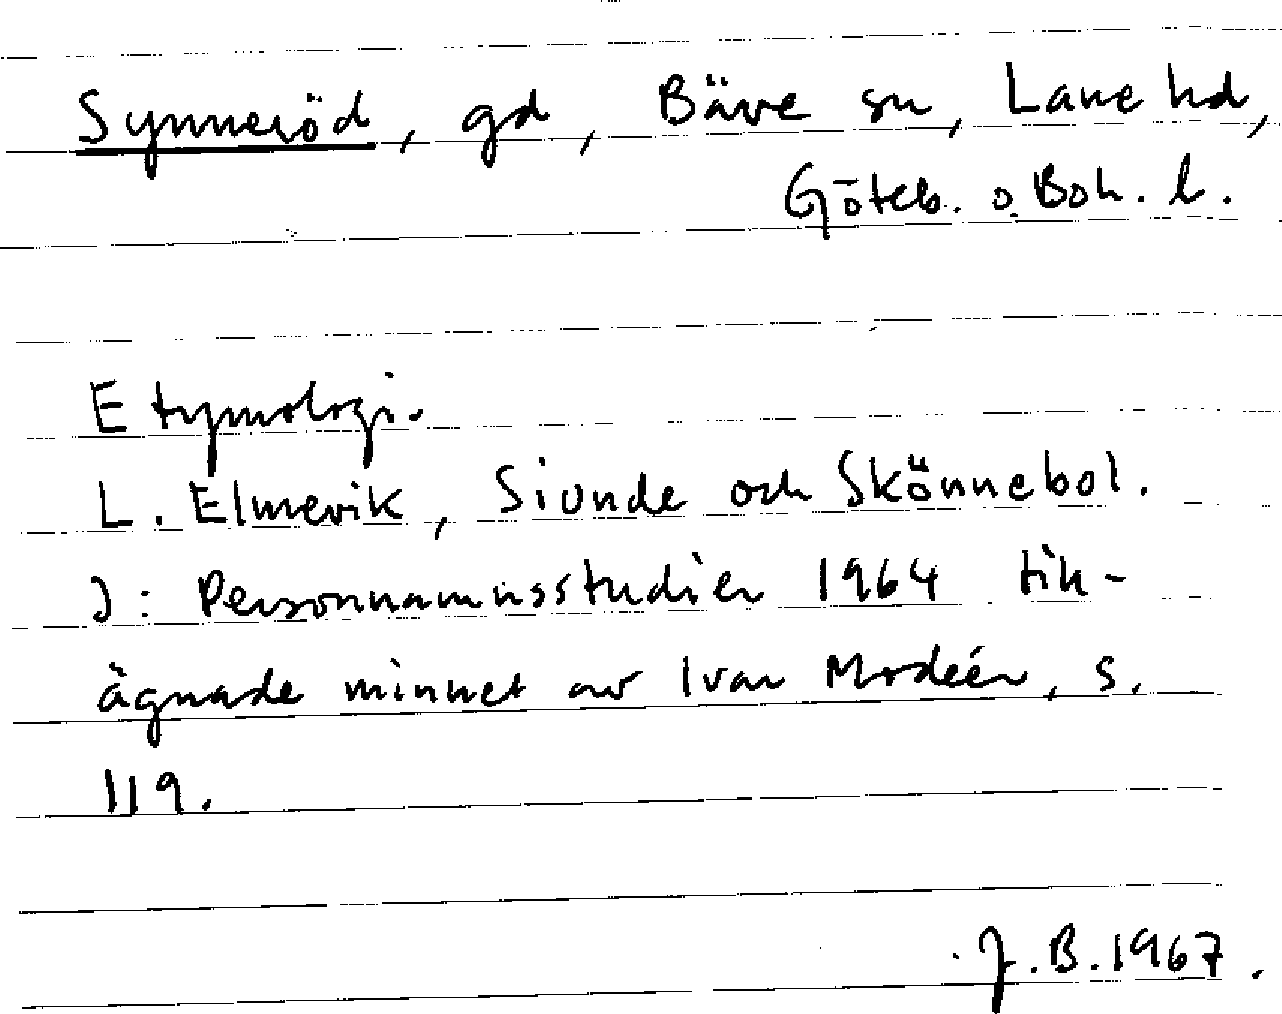 Synneröd, gd, Bäve sn, Lane hd,
Göteb. o. Boh. l.
Etymologi.
L. Elmevik, Siunde och Skönnebol.
I: Personnamnsstudier 1964 till-
ägnade minnet av Ivar Modéer, s.
119.
J.B. 1967.